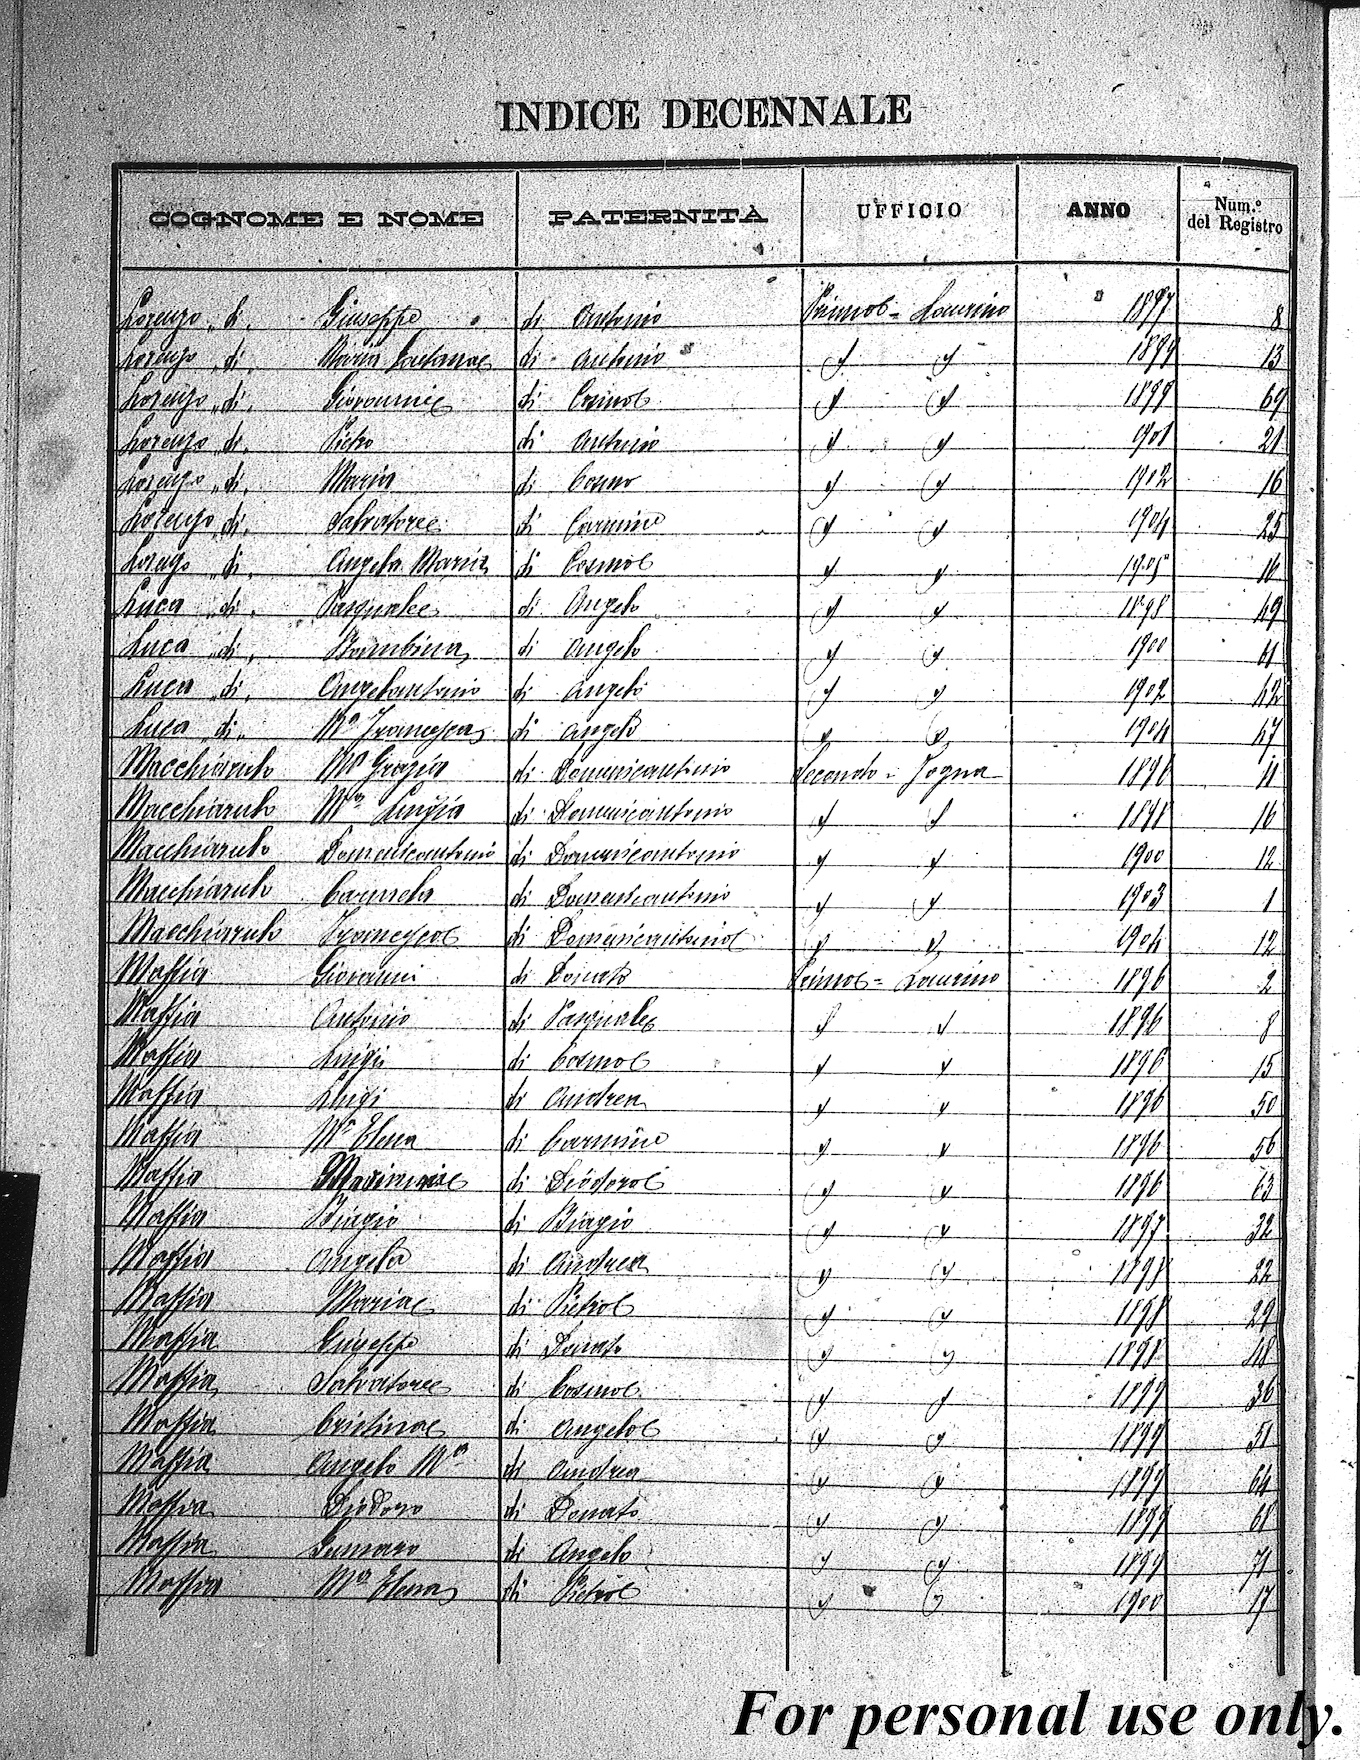 INDICE DECENNALE
COGNOME E NOME PATERNITÀ UFFICIO ANNO Num.º del Registro
Lorenzo „ di „ Giuseppe di Antonio Primo = Laurino 1897 8
Lorenzo „ di „ Maria Gaetana di Antonio " " 1899 13
Lorenzo „ di „ Giovanni di Cosimo " " 1899 69
Lorenzo „ di „ Pietro di Antonio " " 1901 21
Lorenzo „ di „ Maria di Cosmo " " 1902 16
Lorenzo „ di „ Salvatore di Carmine " " 1904 25
Lorenzo „ di „ Angela Maria di Cosmo " " 1905 16
Luca „ di „ Pasquale di Angelo " " 1898 49
Luca „ di „ Bambina di Angelo " " 1900 61
Luca „ di „ Angelantonio di Angelo " " 1902 42
Luca „ di „ Mª Francesca di Angelo " " 1904 47
Macchiarulo Mª Grazia di Domenicantonio Secondo = Fogna 1896 11
Macchiarulo Mª Luigia di Domenicantonio " " 1898 16
Macchiarulo Domenicantonio di Domenicantonio " " 1900 12
Macchiarulo Carmela di Domenicantonio " " 1903 1
Macchiarulo Francesco di Domenicantonio " " 1904 12
Maffia Giovanni di Donato Primo = Laurino 1896 2
Maffia Antonio di Pasquale " " 1896 8
Maffia Luigi di Cosmo " " 1896 15
Maffia Luigi di Andrea " " 1896 50
Maffia Mª Elena di Carmine " " 1896 56
Maffia di Diodoro " " 1896 63
Maffia Biagio di Biagio " " 1897 32
Maffia Angela di Andrea " " 1898 22
Maffia Maria di Pietro " " 1898 29
Maffia Giuseppe di Donato " " 1898 48
Maffia Salvatore di Cosmo " " 1899 36
Maffia Cristina di Angelo " " 1899 51
Maffia Angelo Mª di Andrea " " 1899 64
Maffia Diodoro di Donato " " 1899 68
Maffia Gennaro di Angelo " " 1899 71
Maffia Mª Elena di Pietro " " 1900 17
For personal use only.